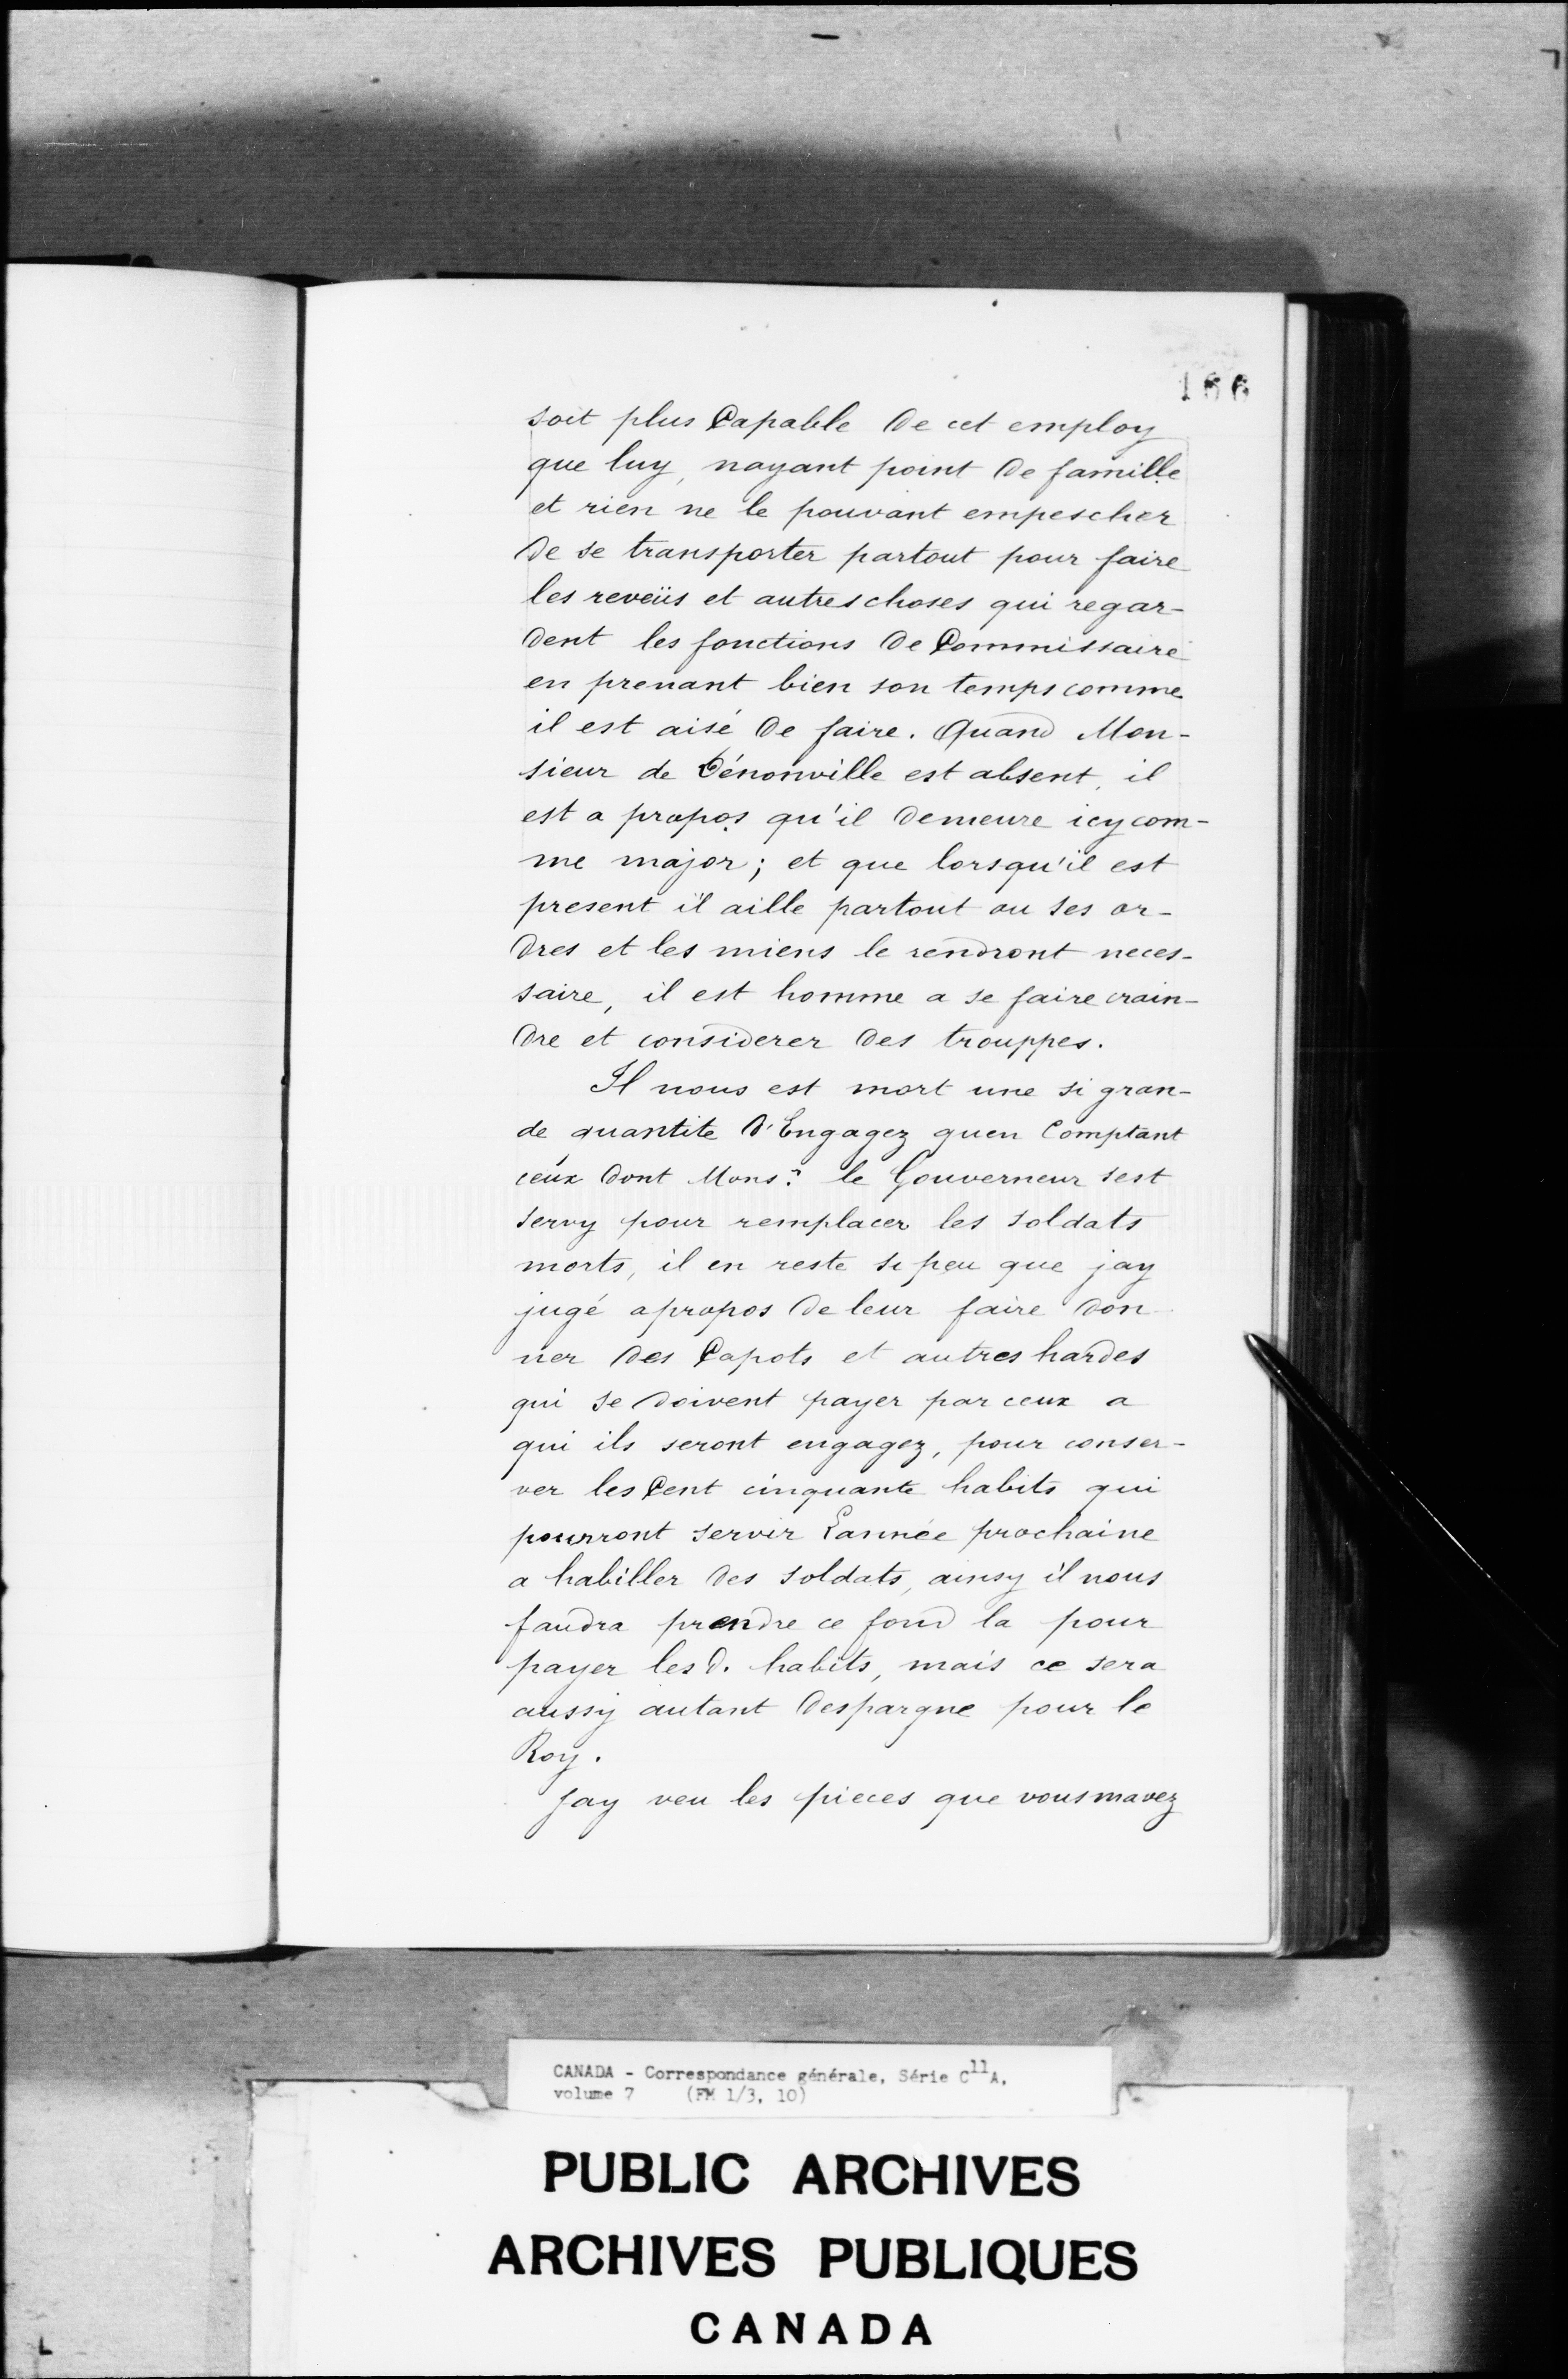 166
soit plus Capable de cet employ
que luy, nayant point de famille
et rien ne le pouvant empescher
de se transporter partout pour faire
les reveüs et autres choses qui regar-
dent les fonctions de Commissaire
en prenant bien son temps comme
il est aisé de faire. Quand Mon-
sieur de Dénonville est absent, il
est a propos qu'il demeure icy com-
me major; et que lorsqu'il est
present il aille partout ou ses or-
dres et les miens le rendront neces-
saire, il est homme a se faire crain-
dre et considerer des trouppes.
Il nous est mort une si gran-
de quantite d'Engagez quen Comptant
ceux dont Monsr. le Gouverneur sest
servy pour remplacer les soldats
morts, il en reste si peu que jay
jugé apropos de leur faire don-
ner des Capots et autres hardes
qui se doivent payer par ceux a
qui ils seront engagez, pour conser-
ver les Cent cinquante habits qui
pourront servir Lannée prochaine
a habiller des soldats, ainsy il nous
faudra prendre ce fond la pour
payer lesd. habits, mais ce sera
aussy autant despargne pour le
Roy.
Jay veu les pieces que vous mavez
CANADA - Correspondance générale, Série C11A,
volume 7 (FM 1/3, 10)
PUBLIC ARCHIVES
ARCHIVES PUBLIQUES
CANADA
L